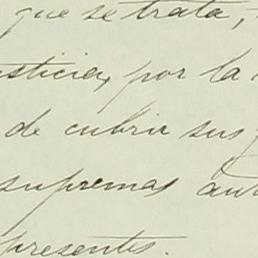 que se trata,
usticia, por la
de cubrir sus
supremas au
presentes.